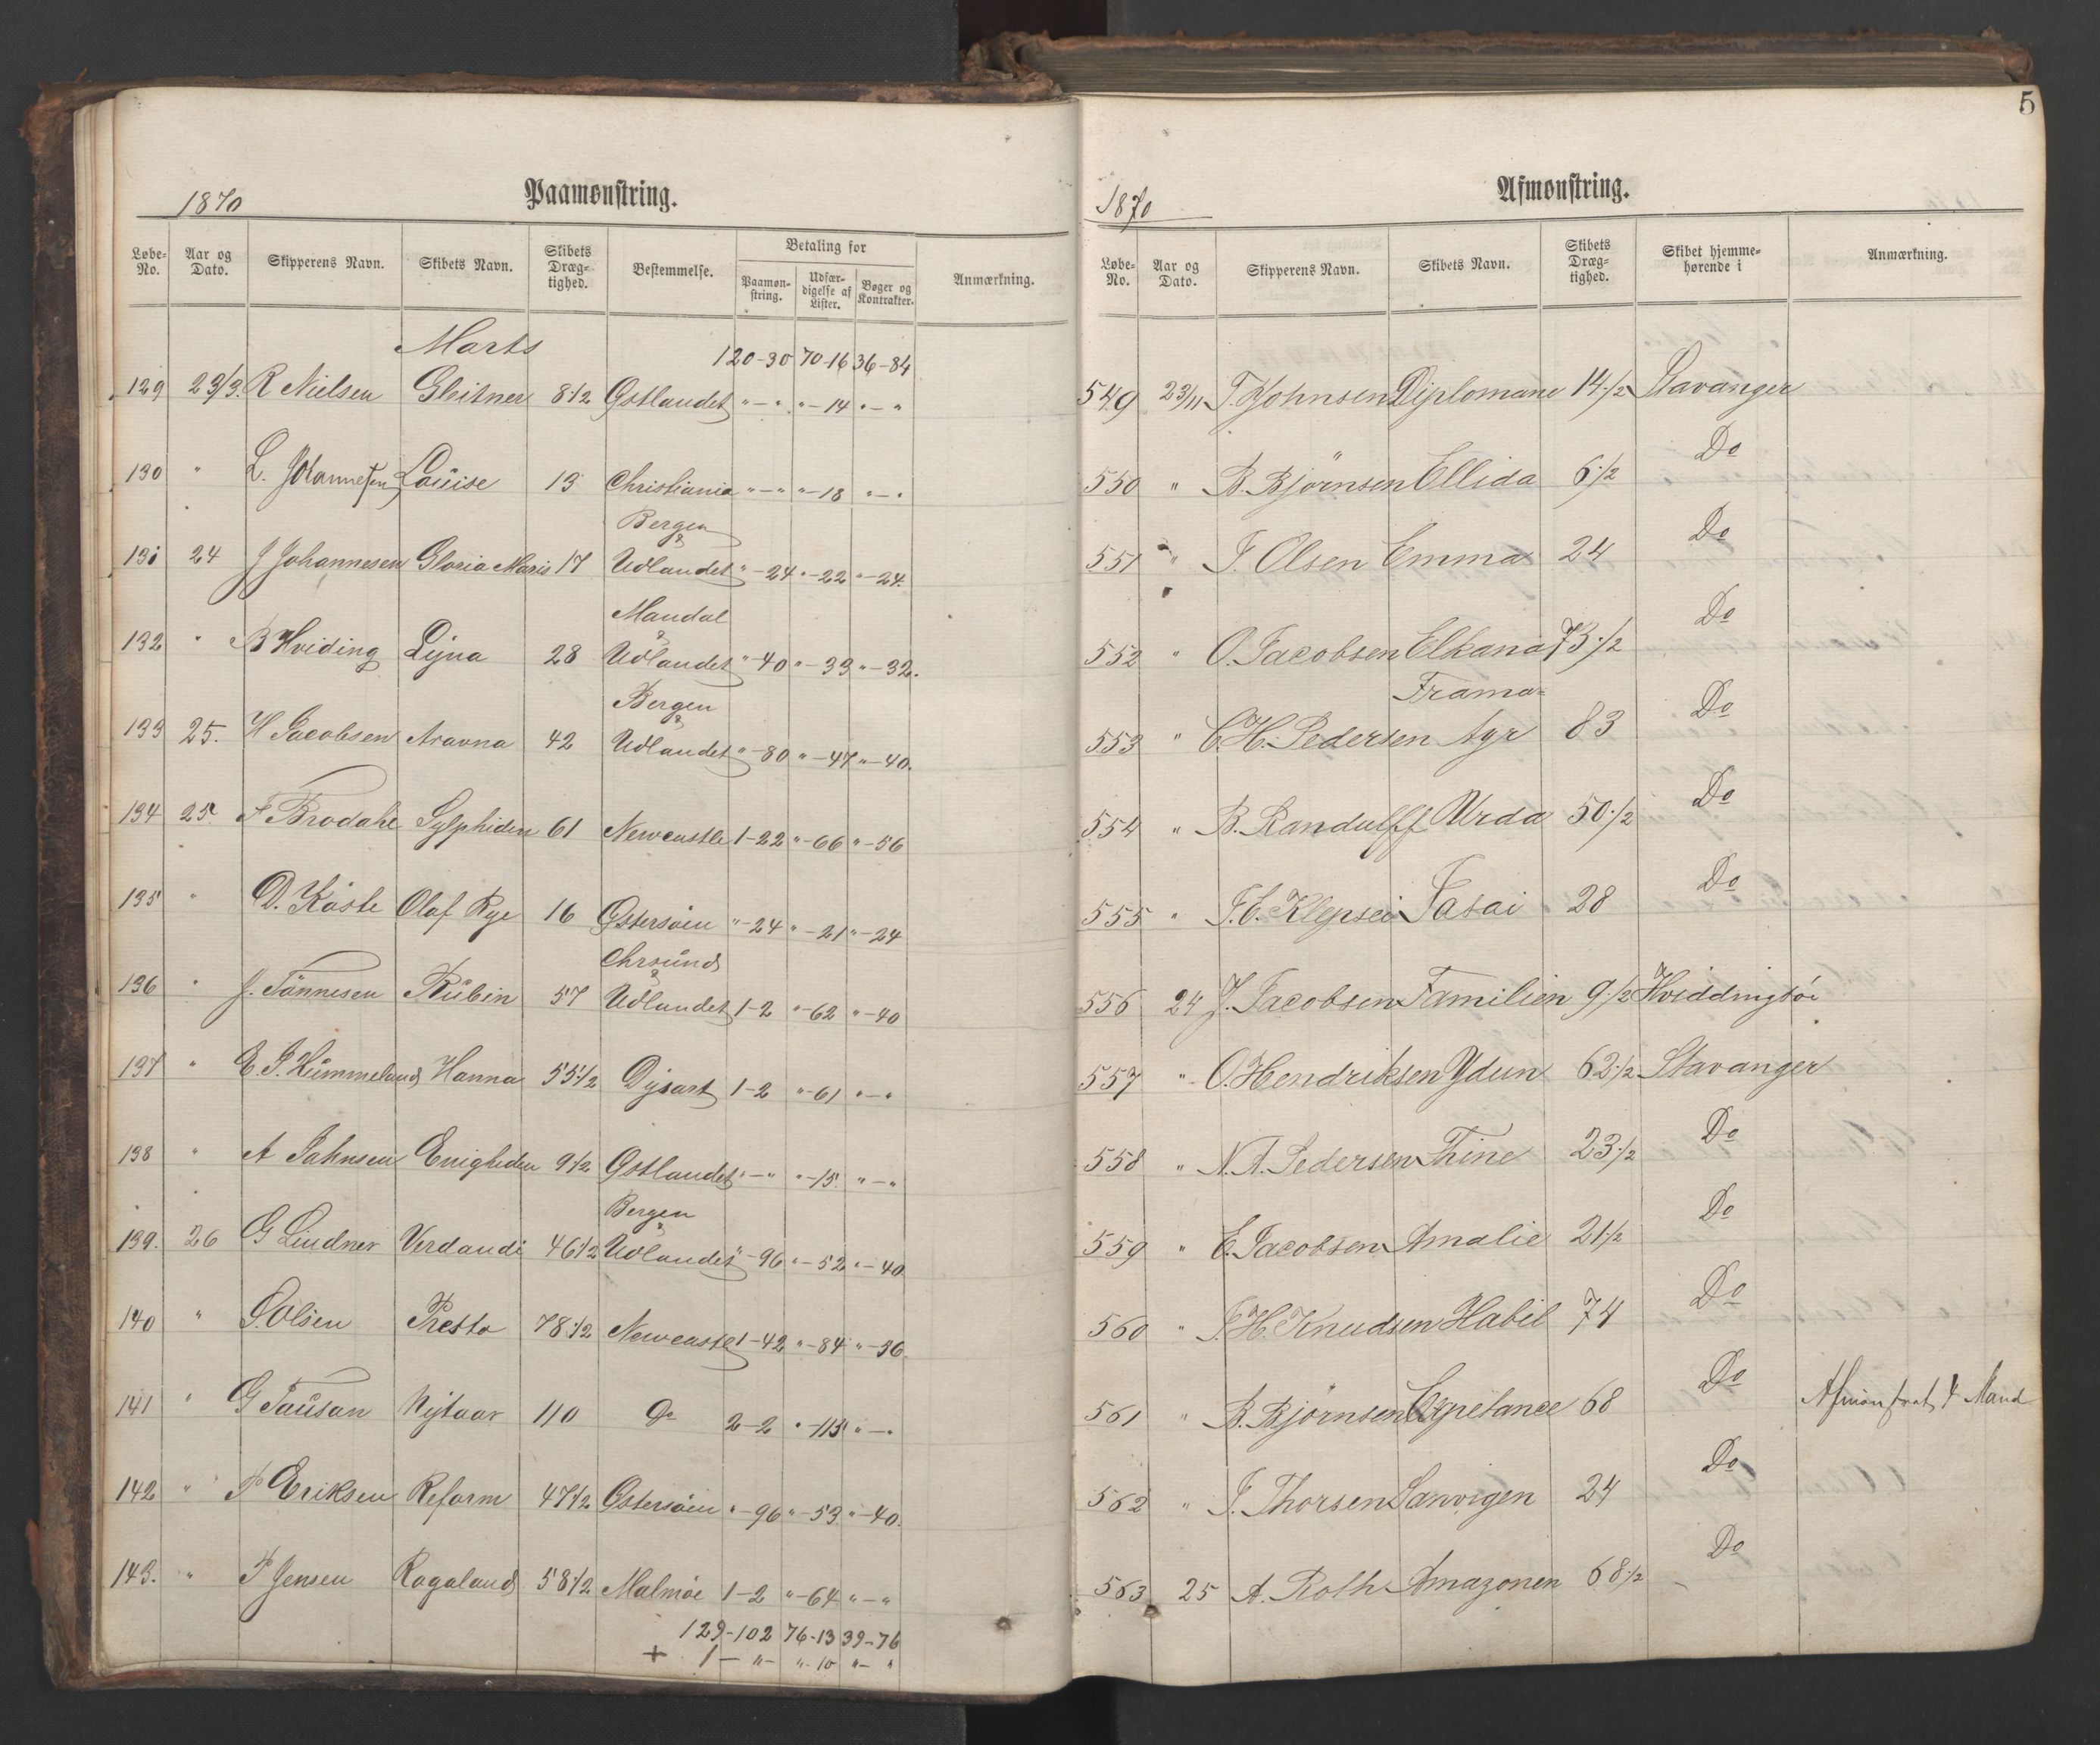 1870 Paamønstring.
Løbe-No. Aar og Dato. Skipperens Navn. Skibets Navn. Skibets Dræg-tighed. Bestemmelse. Betaling for Anmærkning.
Paamøn-string. Udfær-digelse af Lister. Bøger og Kontrakter.
Marts 120-30 70-16 36-84
129 23/3. R Nielsen Gleitner 8 1/2 Østlandet " - " " - 14 " - "
130 " L. Johannesen Louise 13 Christiania " - " " - 18 " - "
Bergen &
131 24 J Johannesen Gloria Maris 17 Udlandet " - 24 " - 22 " - 24.
Mandal &
132 " B Hviding Dyna 28 Udlandet " - 40 " - 33 " - 32.
Bergen &
133 25. H Jacobsen Aravna 42 Udlandet " - 80 " - 47 " - 40.
134 25. F Brodahl Sylphiden 61 Newcastle 1-22 " - 66 " - 56
135 " D. Kaste Olaf Rye 16 Østersøen " - 24 " - 21 " - 24
Chrsund &
136 " J. Tønnesen Rubin 57 Udlandet 1-2 " - 62 " - 40
137 " E. S. Hummeland Hanna 55 1/2 Dysart 1-2 " - 61 " - "
138 " A Jahnsen Enigheden 9 1/2 Østlandet " - " " - 15. " - "
Bergen &
139. 26 G Lindner Verdandi 46 1/2 Udlandet " - 96 " - 52 " - 40
140 " S. Olsen Presto 78 1/2 Newcastle 1-42 " - 84 " - 36.
141 " G Tausan Nytaar 110 Do 2-2 " - 115 " - "
142 " P Eriksen Reform 47 1/2 Østersøen " - 96 " - 53 " - 40.
143. " P Jensen Rogaland 58 1/2 Malmøe 1-2 " - 64 " - "
129-102 76-13 39-76
+ 1 - " - " - 10 " - "
5
1870 Afmønstring.
Løbe-No. Aar og Dato. Skipperens Navn. Skibets Navn. Skibets Dræg-tighed. Skibet hjemme-hørende i Anmærkning.
549 23/11 T. Johnsen Diplomane 14 1/2 Stavanger
550 " B. Bjørnsen Ellida 6 1/2 Do
551 " T. Olsen Emma 24 Do
552 " O. Jacobsen Elkana 73 1/2 Do
Frama-
553 " C. H. Pedersen Ayr 83 Do
554 " B. Randulff Urda 50 1/2 Do
555 " J. C. Klepsei Sasai 28 Do
556 24 J. Jacobsen Familien 9 1/2 Hviddingsø
557 " O. Hendriksen Ydun 62 1/2 Stavanger
558 " N. A. Pedersen Thine 23 1/2 Do
559 " E. Jacobsen Amalie 21 1/2 Do
560 " J. H. Knudsen Habil 74 Do
561 " B. Bjørnsen Espetance 68 Do Afmønstret 1 Mand
562 " T. Thorsen Sanvigen 24 Do
563 25 A. Roth Amazonen 68 1/2 Do